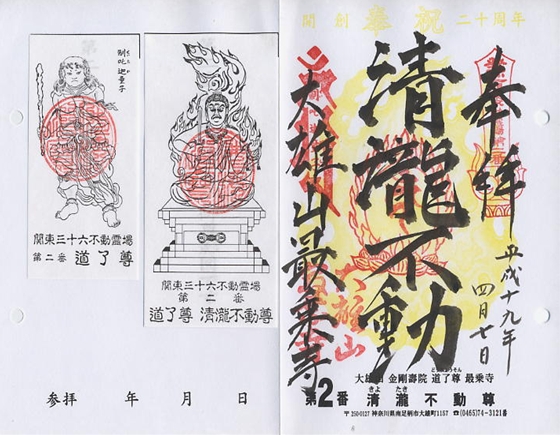 開創奉祝二十周年
奉拝
平成十九年
四月七日
清龍不動
大雄山最乗寺
大雄山 金剛壽院 道了尊 最乗寺
どうりょうそん
第2番 清瀧不動尊
きよ たき
〒250-0127 神奈川県南足柄市大雄町1157 ☎(0465)74-3121番
制吒迦童子
関東三十六不動霊場
第二番 道了尊
関東三十六不動霊場
第二番
道了尊 清瀧不動尊
参拝 年 月 日